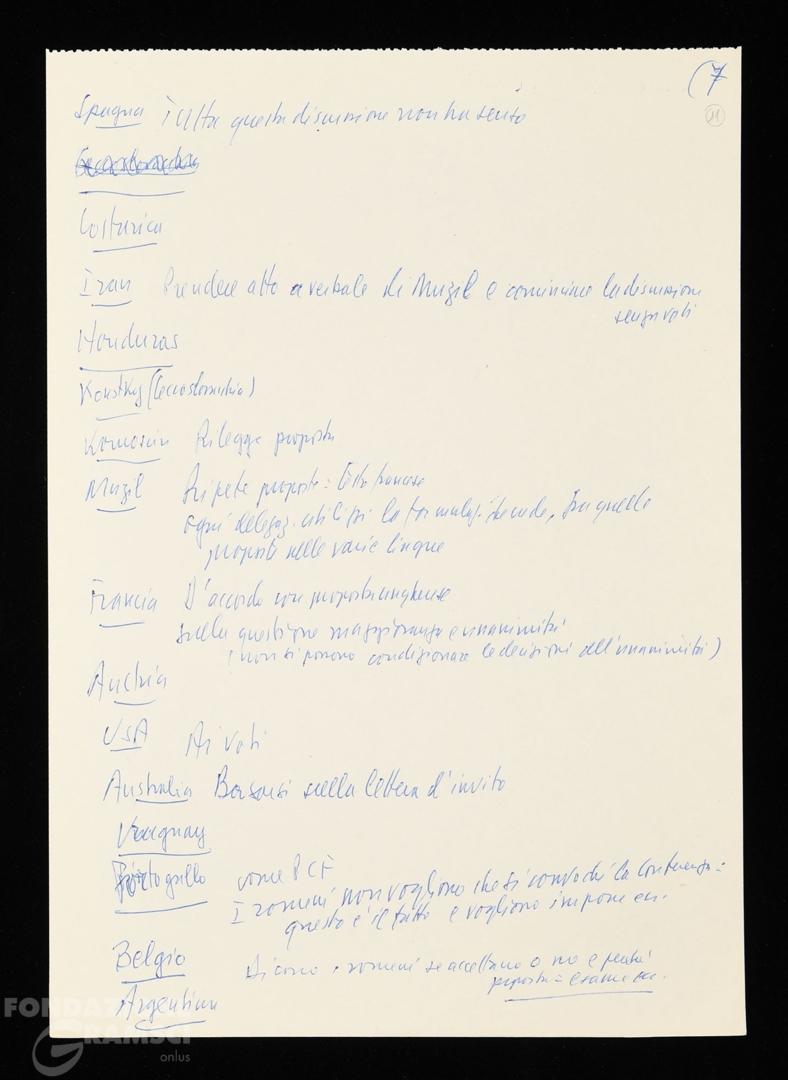 (7
21
Spagna Tutta questa discussione non ha senso
Costarica
Iran Prendere atto a verbale di Muzil e cominciare la discussione
senza voti
Honduras
Koutsky (Cecoslovacchia)
Rilegge proposta
Muzil Ripete proposta = testo francese
ogni delegaz. utilizzi la formulaz. che vede, fra quelle
proposte nelle varie lingue
Francia D'accordo con proposta ungherese
sulla questione maggioranza e unanimità
(non si possono condizionare le decisioni all'unanimità)
Austria
USA Ai voti
Australia Basarsi sulla lettera d'invito
Uruguay
Portogallo come PCF
I romeni non vogliono che si convochi la conferenza =
questo è il fatto e vogliono imporre
Belgio Dicano i romeni se accettano o no e perché
proposta =
Argentina
FONDAZIONE
GRAMSCI
onlus